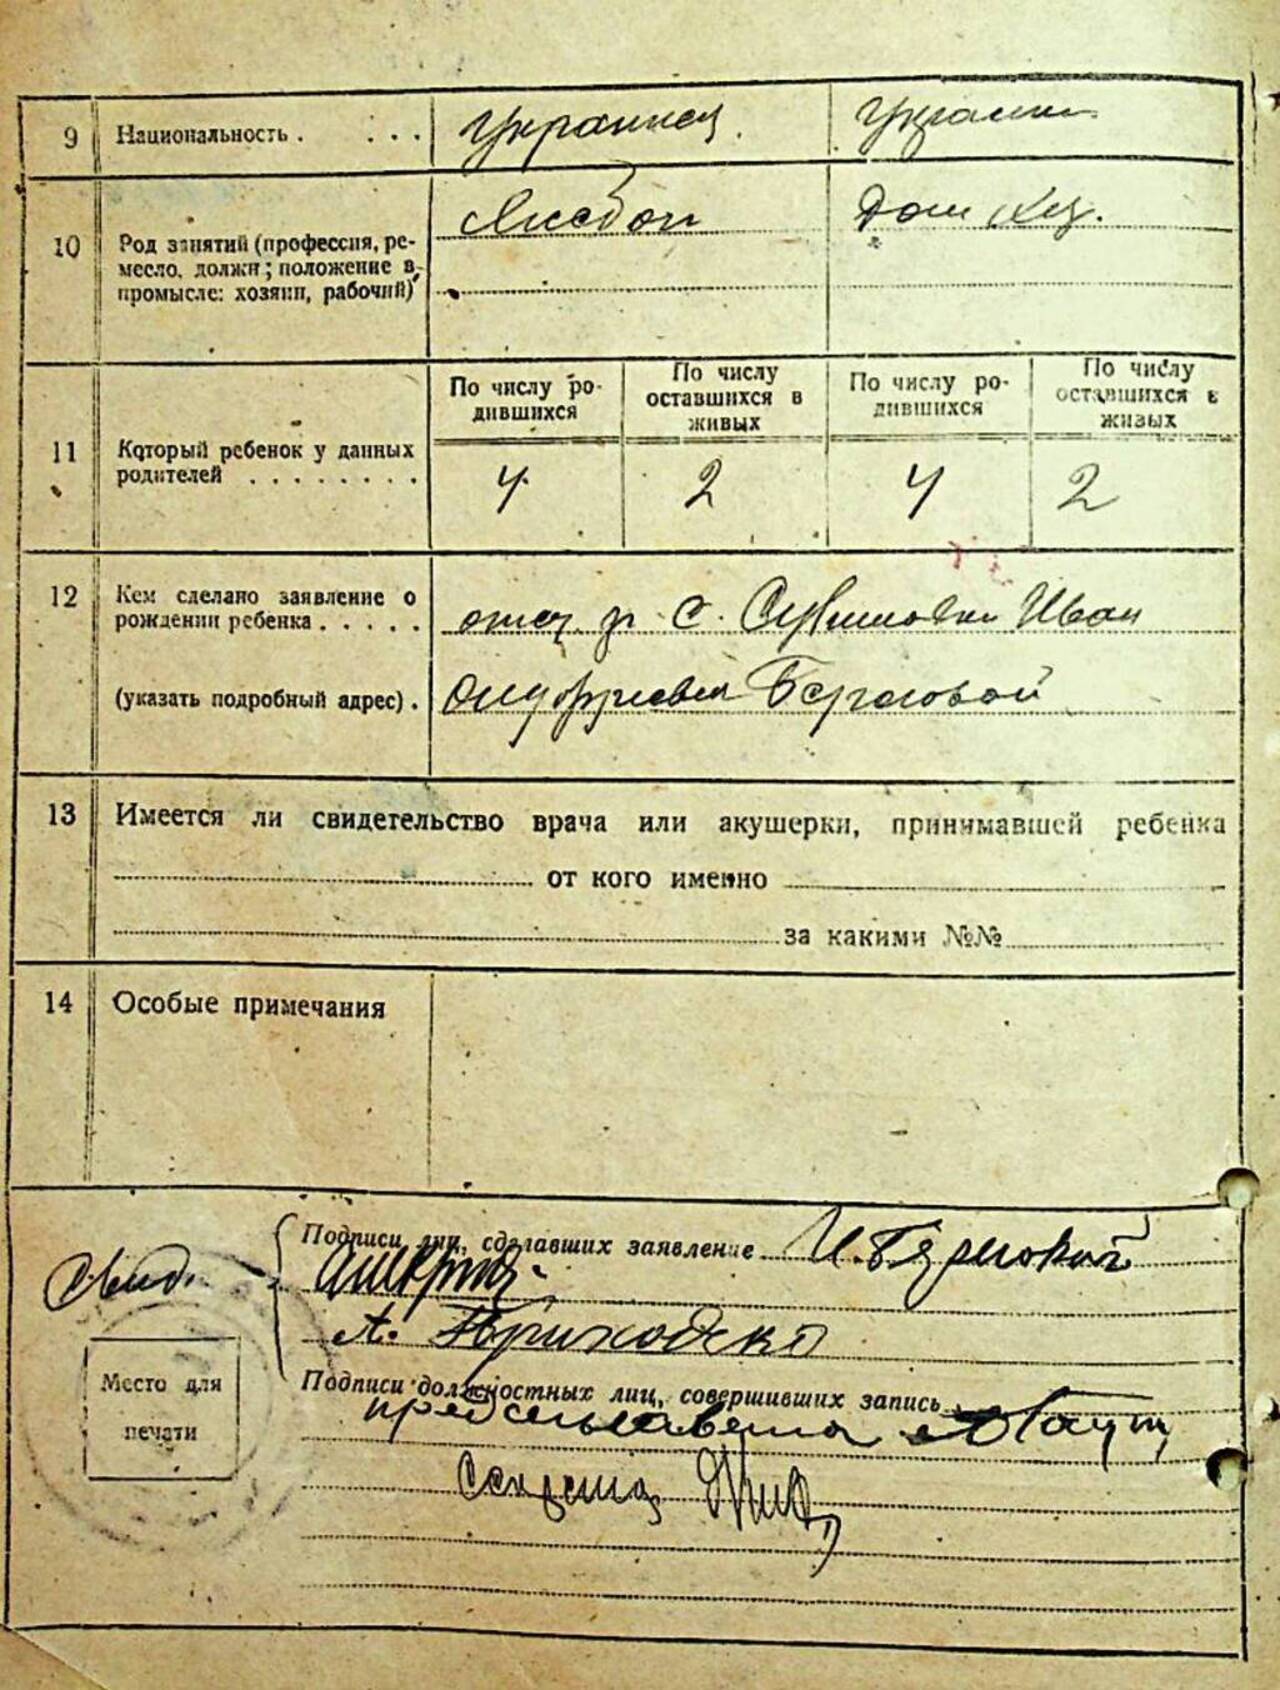 9 Национальность . . . . Украинец Украин
10 Род занятий (профессия, ре-
месло, должн; положение в
промысле: хозяин, рабочий)
Дом хоз.
11 Который ребенок у данных
родителей . . . . . . . .
По числу ро-
дившихся
По числу
оставшихся в
живых
По числу ро-
дившихся
По числу
оставшихся в
живых
4 2 4 2
12 Кем сделано заявление о
рождении ребенка . . . . .
отец с. Иван
(указать подробный адрес) .
Береговой
13 Имеется ли свидетельство врача или акушерки, принимавшей ребенка
от кого именно
за какими №№
14 Особые примечания
Подписи лиц, сделавших заявление И. Береговой
Свид.
А. Приходько
Подписи должностных лиц, совершивших запись
Место для
печати